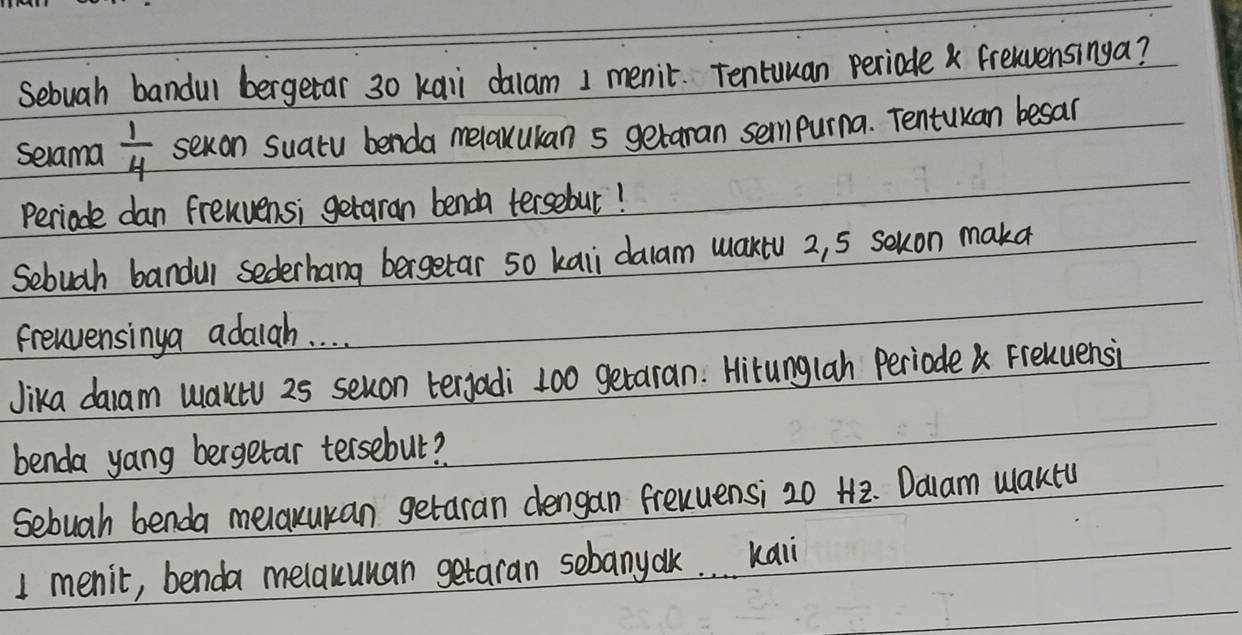 Sebuah bandul bergetar 30 kali dalam 1 menit. Tentukan periode & frekuensinya?
Selama 1/4 sekon suatu benda melakukan 5 getaran sempurna. Tentukan besar
Periode dan frekuensi getaran benda tersebut!
Sebuah bandul sederhana bergetar 50 kali dalam waktu 2,5 sekon maka
frekuensinya adalah....
Jika dalam waktu 25 sekon terjadi 100 getaran. Hitunglah Periode & Frekuensi
benda yang bergetar tersebut?
Sebuah benda melakukan getaran dengan frekuensi 20 Hz. Dalam waktu
1 menit, benda melakukan getaran sebanyak ... kali